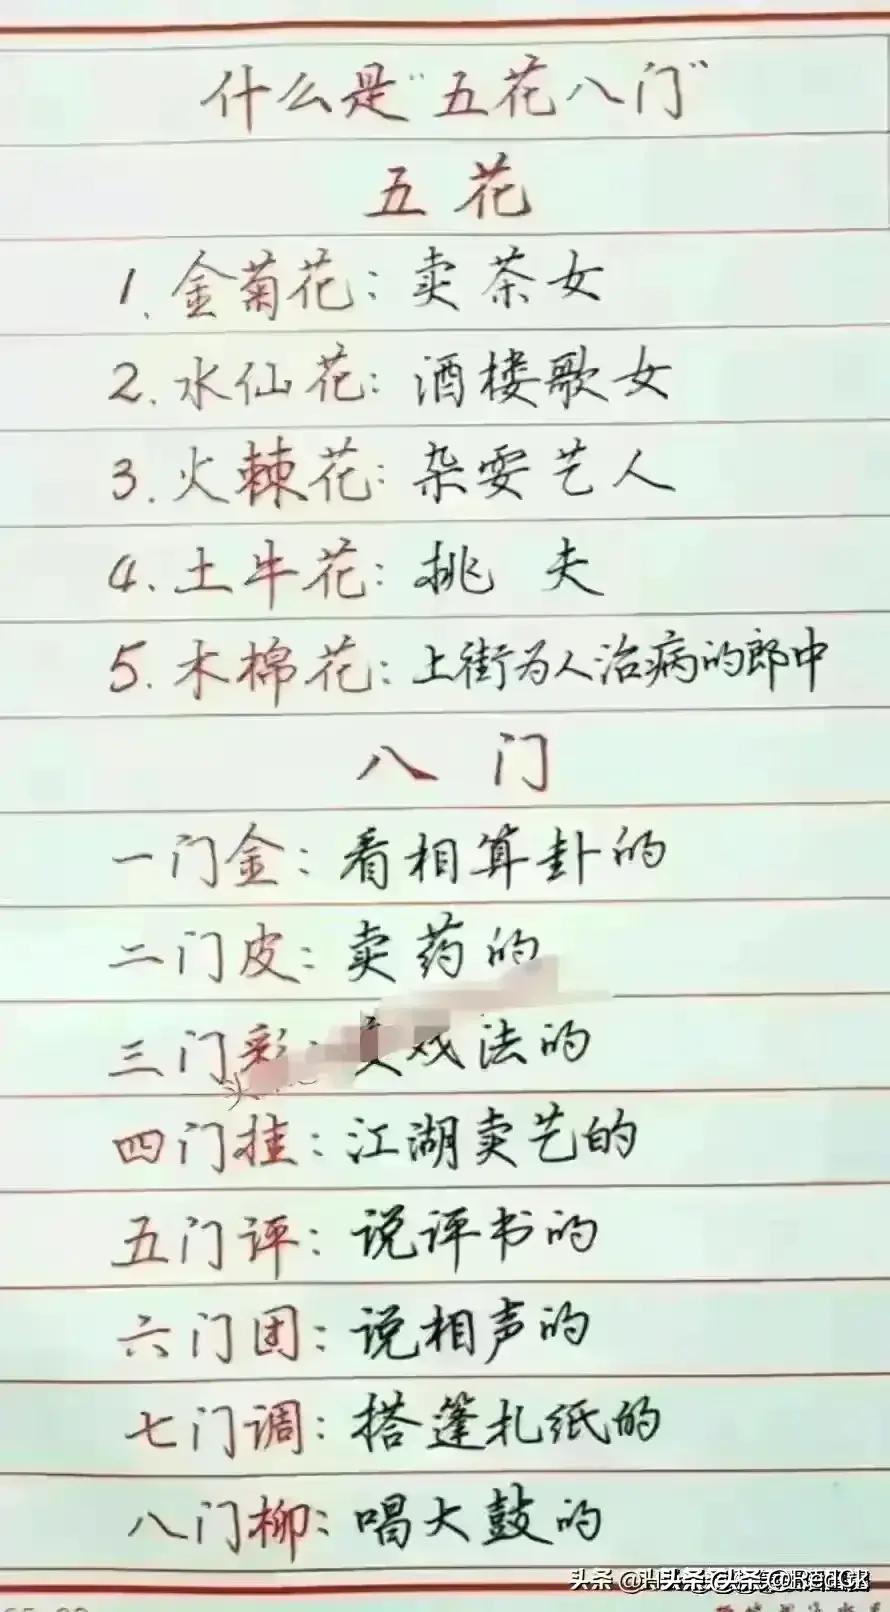 什么是“五花八门”
五花
1.金菊花：卖茶女
2.水仙花：酒楼歌女
3.火棘花：杂耍艺人
4.土牛花：挑夫
5.木棉花：上街为人治病的郎中
八门
一门金：看相算卦的
二门皮：卖药的
三门彩：戏法的
四门挂：江湖卖艺的
五门评：说评书的
六门团：说相声的
七门调：搭篷扎纸的
八门柳：唱大鼓的
头条